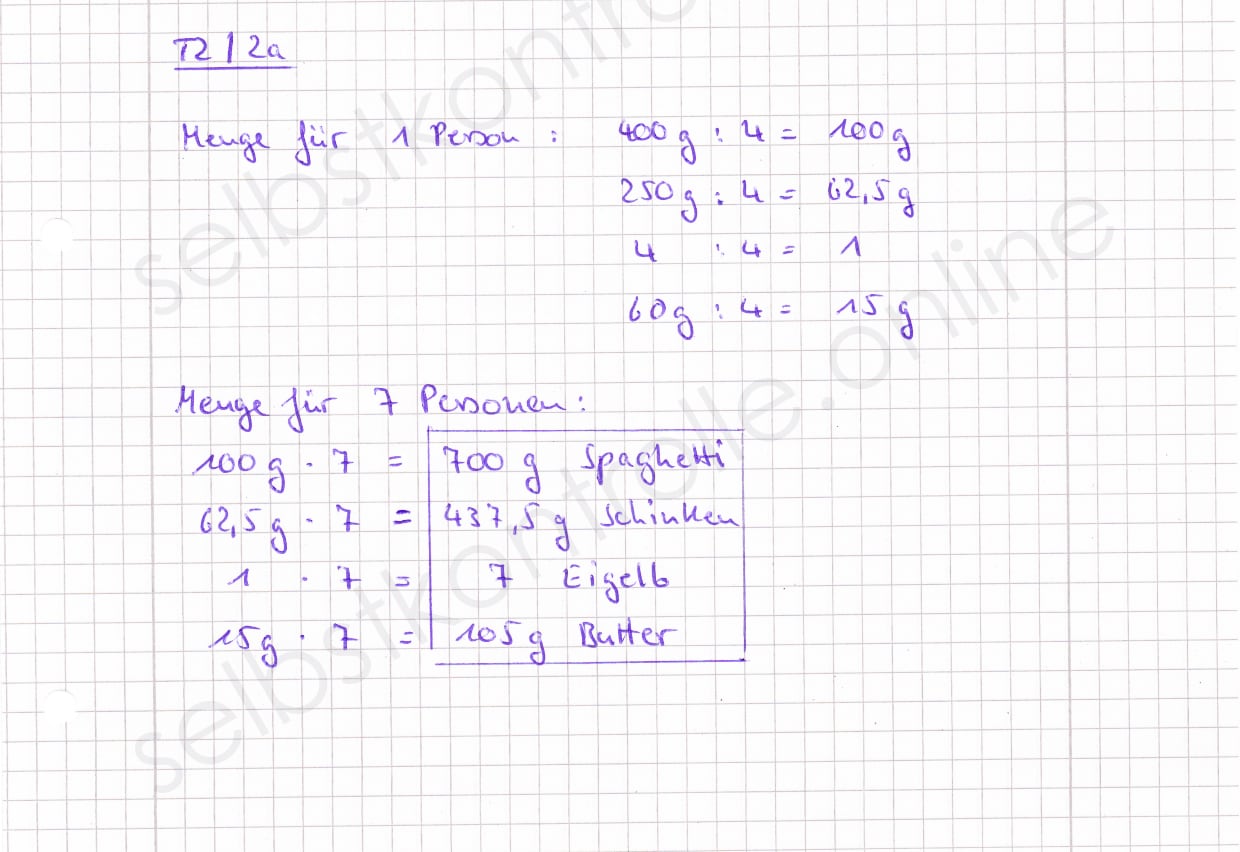 T2 | 2a
Menge für 1 Person : 400 g : 4 = 100 g
250 g : 4 = 62,5 g
4 : 4 = 1
60 g : 4 = 15 g
Menge für 7 Personen :
100 g · 7 = 700 g Spaghetti
62,5 g · 7 = 437,5 g Schinken
1 · 7 = 7 Eigelb
15 g · 7 = 105 g Butter
selbstkontrolle.online
selbstkontrolle.online